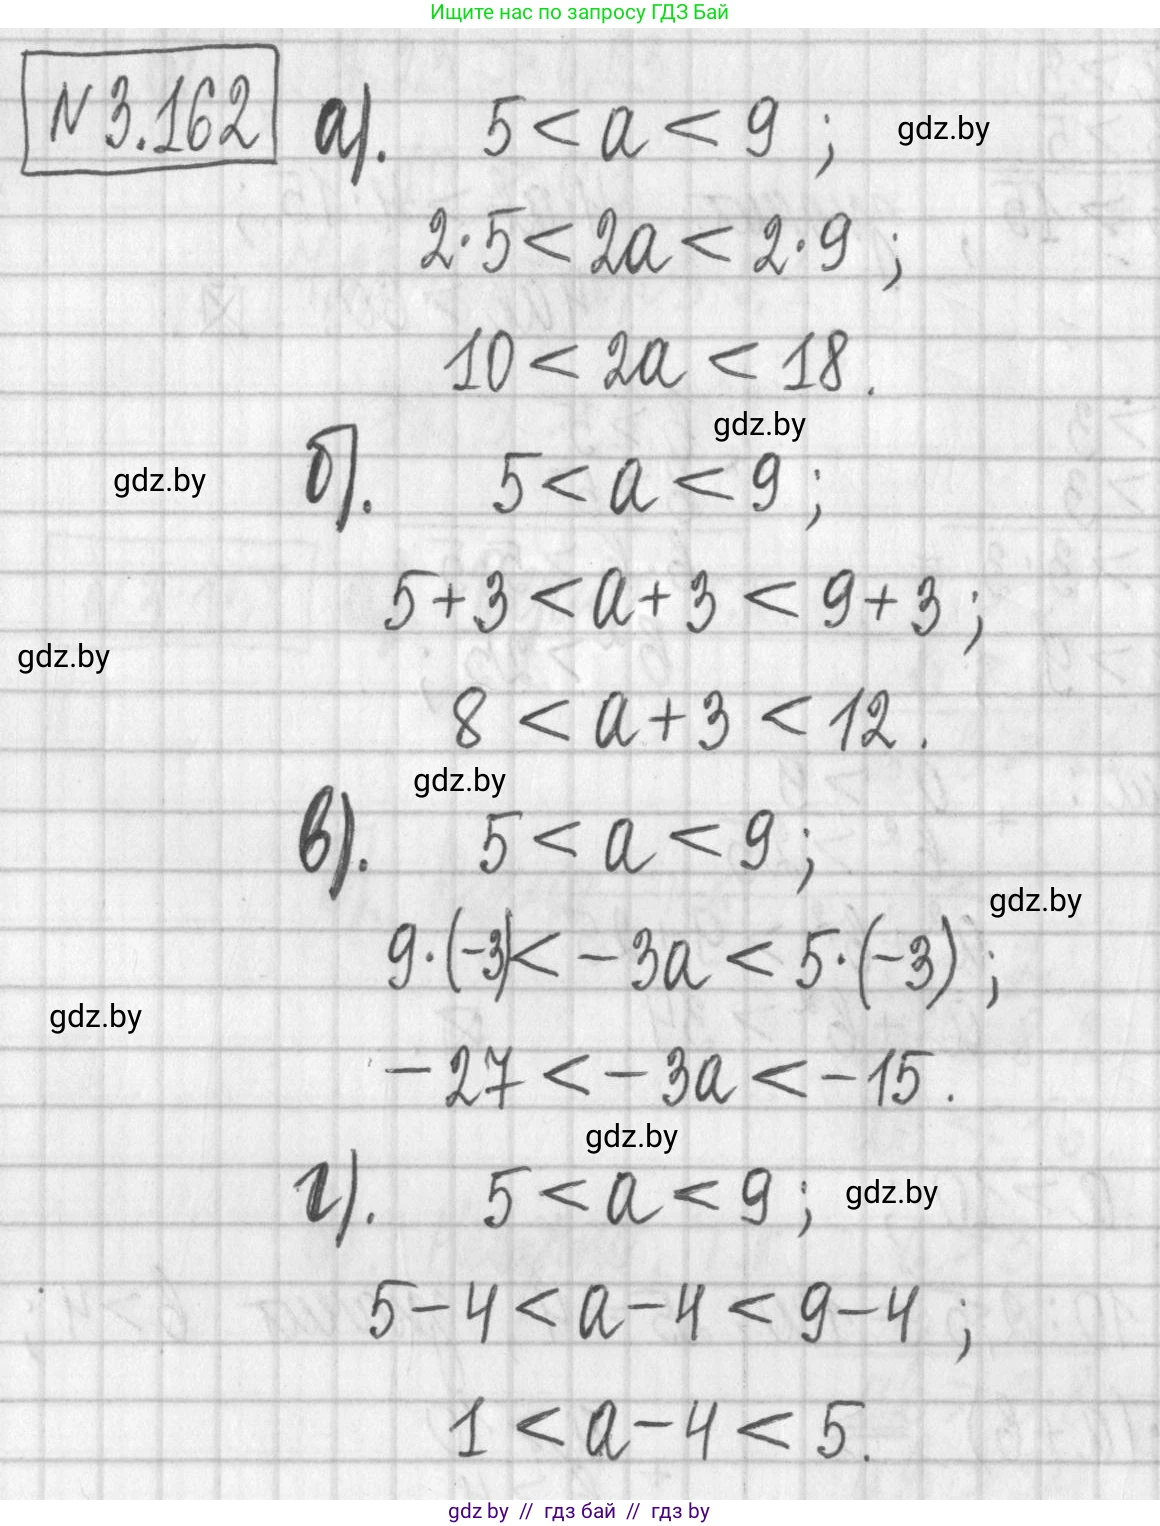 Ищите нас по запросу ГДЗ Бай
N 3.162 а). 5 < a < 9 ; gdz.by
2·5 < 2a < 2·9 ;
10 < 2a < 18.
gdz.by
gdz.by б). 5 < a < 9 ;
5+3 < a+3 < 9+3 ;
gdz.by
8 < a+3 < 12.
gdz.by
в). 5 < a < 9 ;
gdz.by
9·(-3) < -3a < 5·(-3) ;
gdz.by
-27 < -3a < -15.
gdz.by
г). 5 < a < 9 ; gdz.by
5-4 < a-4 < 9-4 ;
1 < a-4 < 5.
gdz.by // гдз бай // гдз by